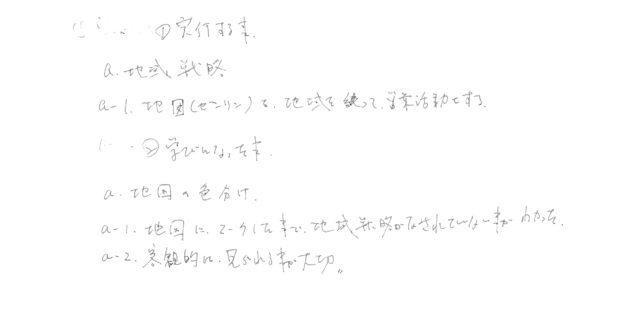 ①実行する事。
a. 地域戦略
a-1. 地図(ゼンリン)で、地域を絞って、営業活動とする。
②学びになった事。
a. 地図の色分け。
a-1. 地図に、マークした事で、地域戦略がなされていない事がわかった。
a-2. 客観的に、見られる事が大切。